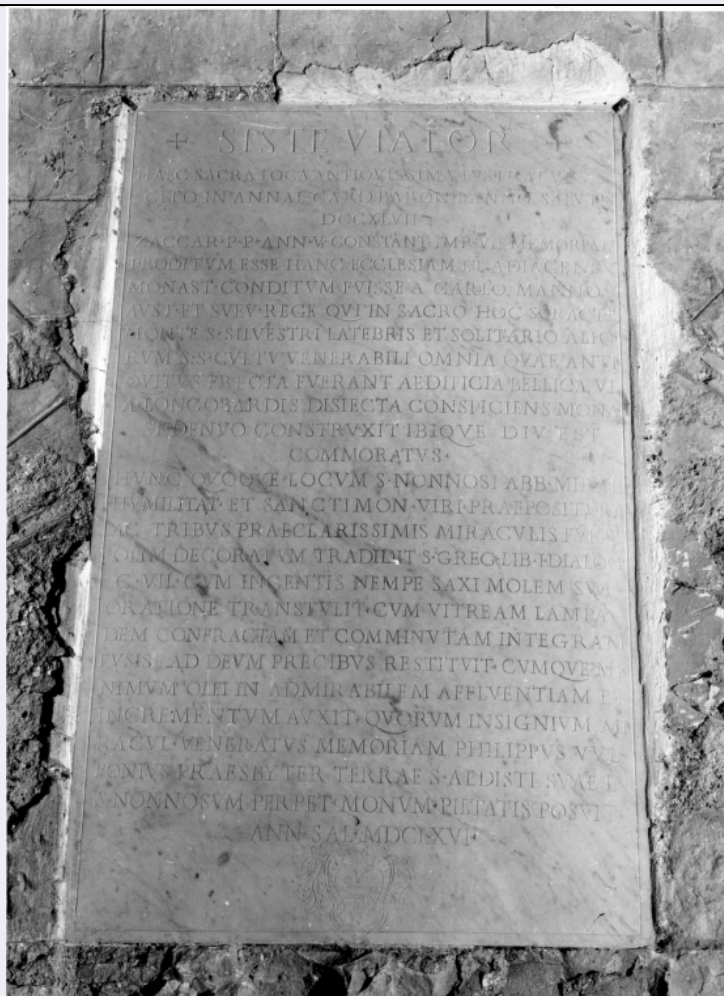 + SISTE VIATOR +
HAEC SACRA LOCA ANTIQVISSIMA
IN ANNAL· CARD· BARON·
DCCXLVII
ZACCAR· P· P· ANN· V· CONSTANT· IMP· VII· MEMORIAE
PRODITVM ESSE HANC ECCLESIAM ET ADIACENS
MONAST· CONDITVM FVISSE A CARLO MANNO
AVST· ET SVEV· REGE QVI IN SACRO HOC SORACTE
MONTE S· SILVESTRI LATEBRIS ET SOLITARIO ALIO
RVM S· S· CVLTV VENERABILI OMNIA QVAE ANTI
QVITVS ERECTA FVERANT AEDIFICIA BELLICA VI
A LONGOBARDIS DISIECTA CONSPICIENS MONA
DENVO CONSTRVXIT IBIQVE DIV EST
COMMORATVS·
HVNC QVOQVE LOCVM S· NONNOSI ABB·
HVMILITAT· ET SANCTIMON· VIRI PRAEPOSITVRA
TRIBVS PRAECLARISSIMIS MIRACVLIS
OLIM DECORATVM TRADIDIT S· GREG· LIB· I· DIALOG
C· VII· CVM INGENTIS NEMPE SAXI MOLEM SVA
ORATIONE TRANSTVLIT· CVM VITREAM LAMPA
DEM CONFRACTAM ET COMMINVTAM INTEGRAM
FVSIS AD DEVM PRECIBVS RESTITVIT· CVMQVE MI
NIMVM OLEI IN ADMIRABILEM AFFLVENTIAM ET
INCREMENTVM AVXIT· QVORVM INSIGNIVM MI
RACVL· VENERATVS MEMORIAM PHILIPPVS VVL
PONIVS PRAESBYTER TERRAE S· AEDISTI SVAE IN
S· NONNOSVM PERPET· MONVM· PIETATIS POSVIT
ANN· SAL· MDCLXVI·